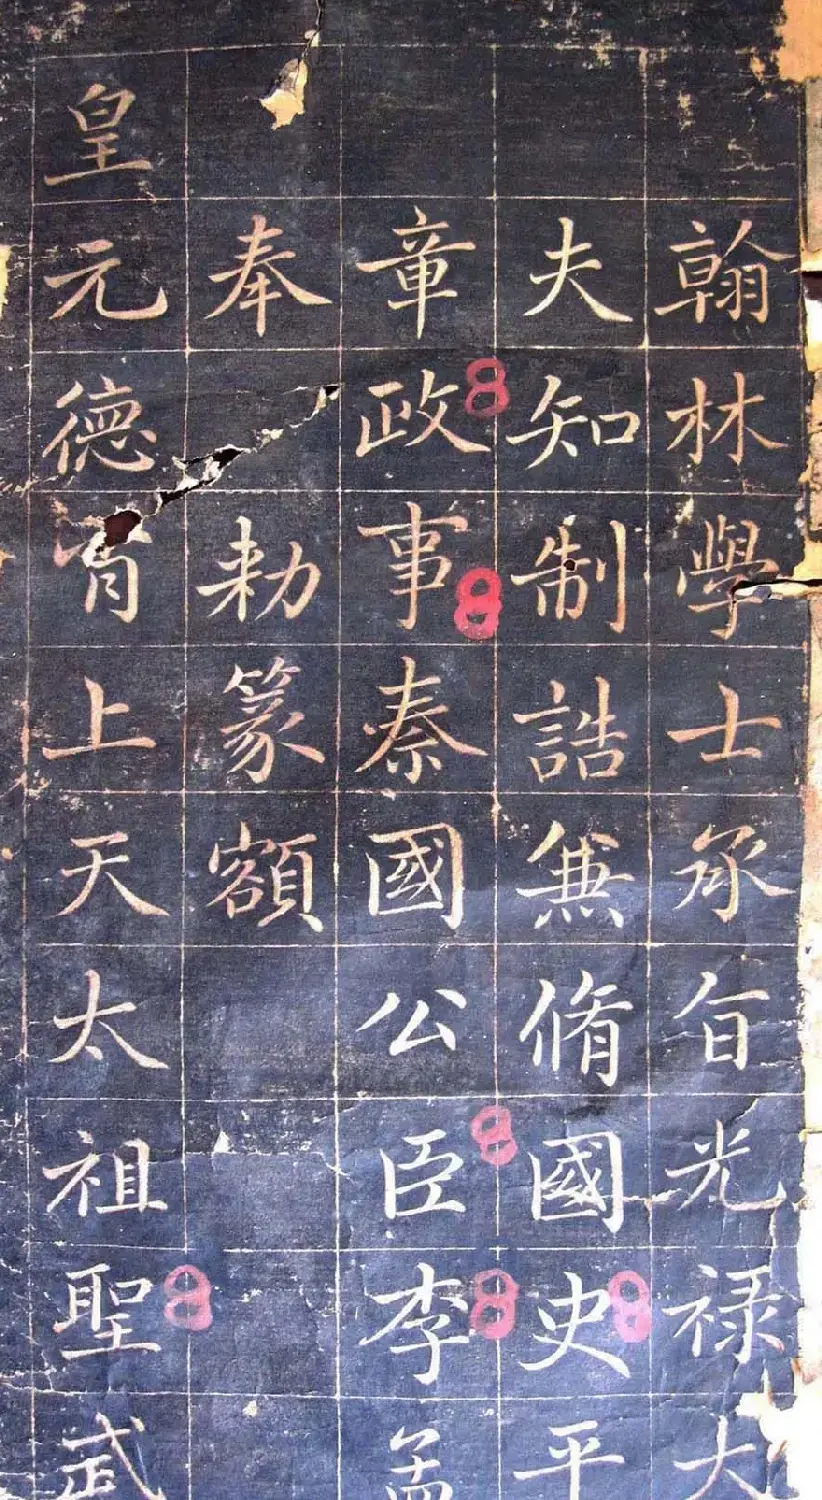 翰林學士承㫖光禄大
夫知制誥兼脩國史平
章政事秦國公臣李孟
奉勅篆額
皇元德有上天太祖聖武